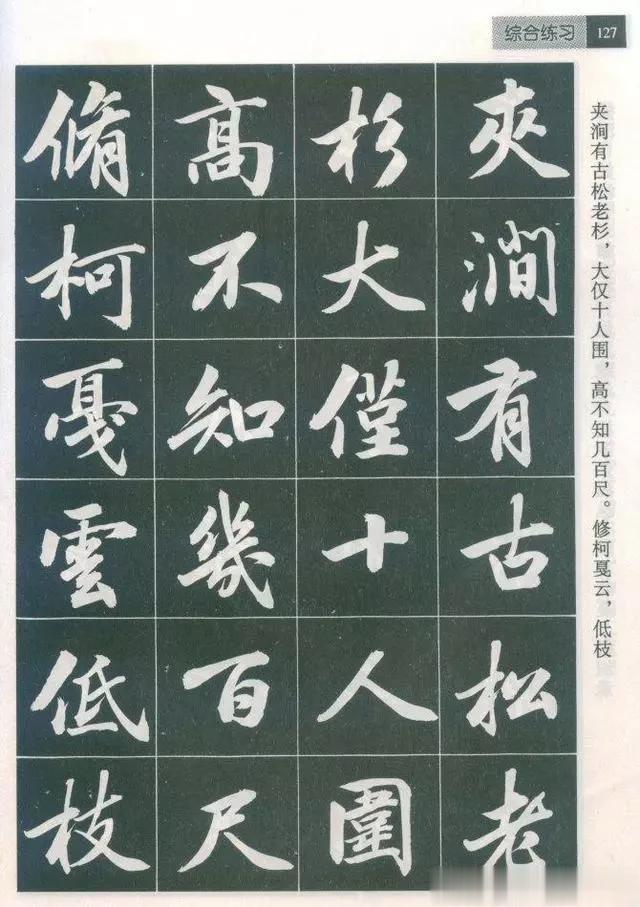 综合练习 127
夾澗有古松老
杉大僅十人圍
高不知幾百尺
脩柯戛雲低枝
夹涧有古松老杉，大仅十人围，高不知几百尺。修柯戛云，低枝